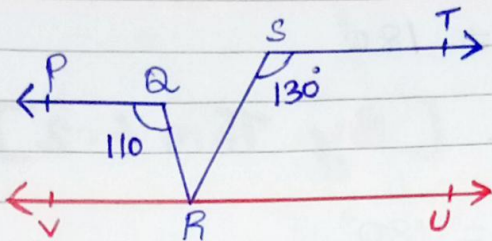 S T
P Q 130°
110
V R U